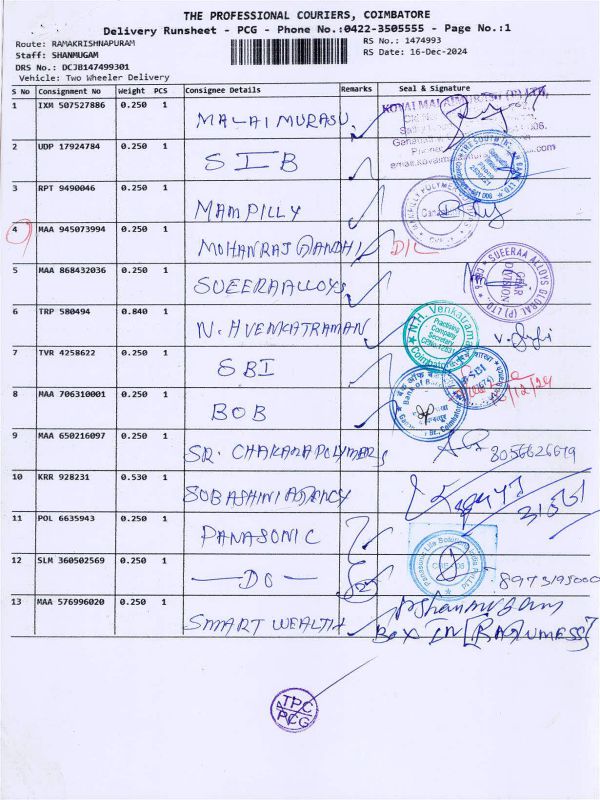 THE PROFESSIONAL COURIERS, COIMBATORE
Delivery Runsheet - PCG - Phone No.:0422-3505555 - Page No.:1
Route: RAMAKRISHNAPURAM
RS No.: 1474993
Staff: SHANMUGAM
RS Date: 16-Dec-2024
DRS No.: DCJB147499301
Vehicle: Two Wheeler Delivery
S No Consignment No Weight PCS Consignee Details Remarks Seal & Signature
1 IXM 507527886 0.250 1 MALAI MURASU
2 UDP 17924784 0.250 1 SIB
3 RPT 9490046 0.250 1 MAMPILLY
4 MAA 945073994 0.250 1 MOHANRAJ GANDHI D/L
5 MAA 868432036 0.250 1 SUEERAALLOYS
SUEERAA ALLOYS GLOBAL (P) LTD.
CBE - 6
GEAR DIVISION
6 TRP 580494 0.840 1 N. H VENKATRAMAN
N.H. Venkatraman
Practising
Company
Secretary
Coimbatore
7 TVR 4258622 0.250 1 SBI
SBI
8 MAA 706310001 0.250 1 BOB
9 MAA 650216097 0.250 1 SR. CHAKANA POLYMERS 8056626679
10 KRR 928231 0.530 1 SUBASHINI AGENCY
11 POL 6635943 0.250 1 PANASONIC
12 SLM 360502569 0.250 1 — DO —
13 MAA 576996020 0.250 1 SMART WEALTH
BOX IN
TPC
PCG